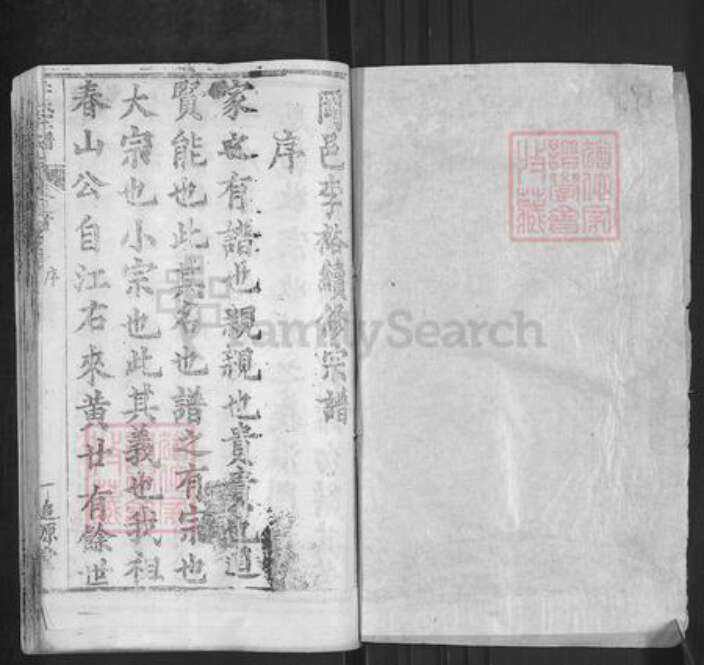 岡邑李裕續修宗譜
序
家之有譜也親親也貴貴也
賢能也此其名也譜之有宗也
大宗也小宗也此其義也我祖
春山公自江右來黃廿有餘世
序
一追原堂
FamilySearch